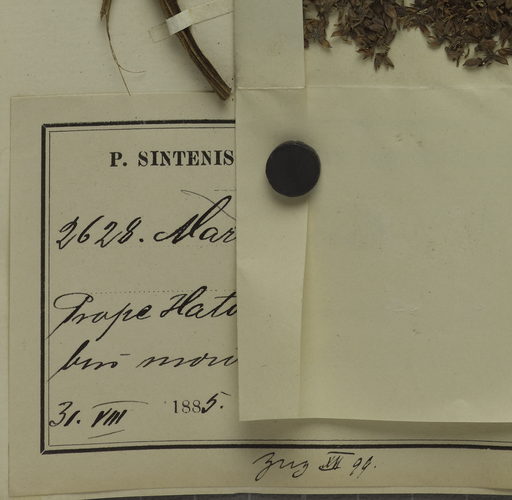 P. SINTENIS
2628. Mar
Prope Hato
bus mon
31. VIII 1885.
XII 99.